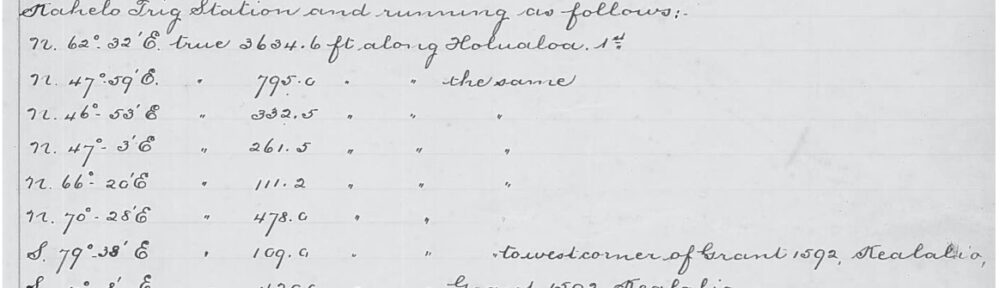 Kahelo Trig Station and running as follows:-
N. 62° 32' E. true 3634.6 ft along Holualoa. 1st
N. 47° 59' E. " 795.0 " " the same
N. 46° - 53' E " 332.5 " " "
N. 47° - 3' E " 261.5 " " "
N. 66° - 20' E " 111.2 " " "
N. 70° - 28' E " 478.0 " "
S. 79° - 38' E " 109.0 " " " to west corner of Grant 1592,
Grant 1592